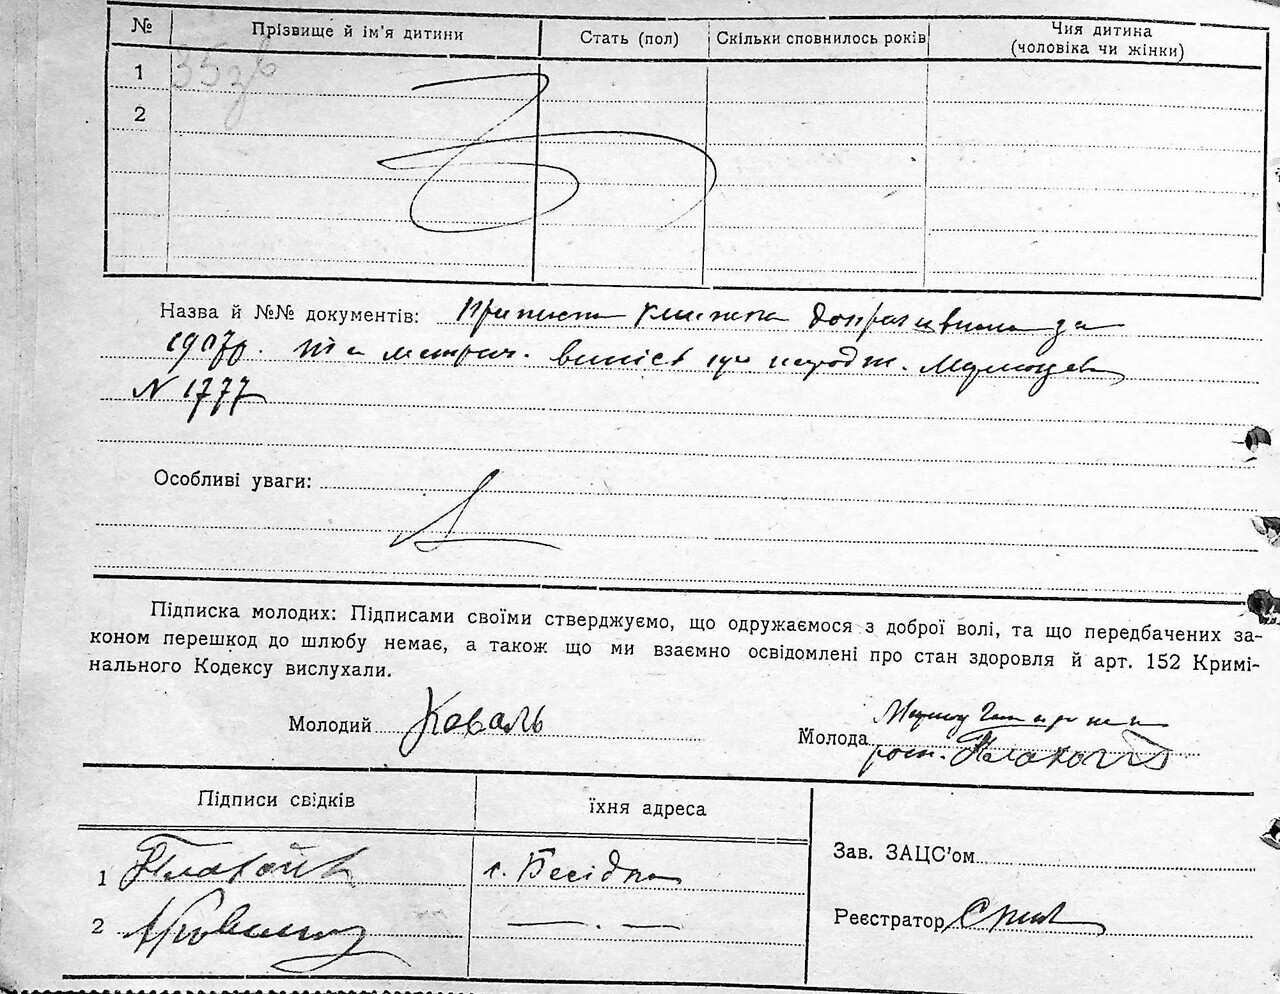 № Прізвище й ім'я дитини Стать (пол) Скільки сповнилось років Чия дитина
(чоловіка чи жінки)
1
2
Назва й №№ документів: книжка за
та метрич. випись народж.
N 1777
Особливі уваги:
Підписка молодих: Підписами своїми стверджуємо, що одружаємося з доброї волі, та що передбачених за-
коном перешкод до шлюбу немає, а також що ми взаємно освідомлені про стан здоровля й арт. 152 Кримі-
нального Кодексу вислухали.
Молодий Коваль
Молода
Підписи свідків їхня адреса
1 с. Бесідка
2 — . —
Зав. ЗАЦС'ом
Реєстратор